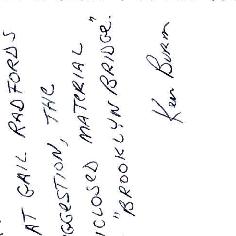 AT GAIL RADFORDS
GGESTION, THE
NCLOSED MATERIAL
"BROOKLYN BRIDGE."
Ken Burns